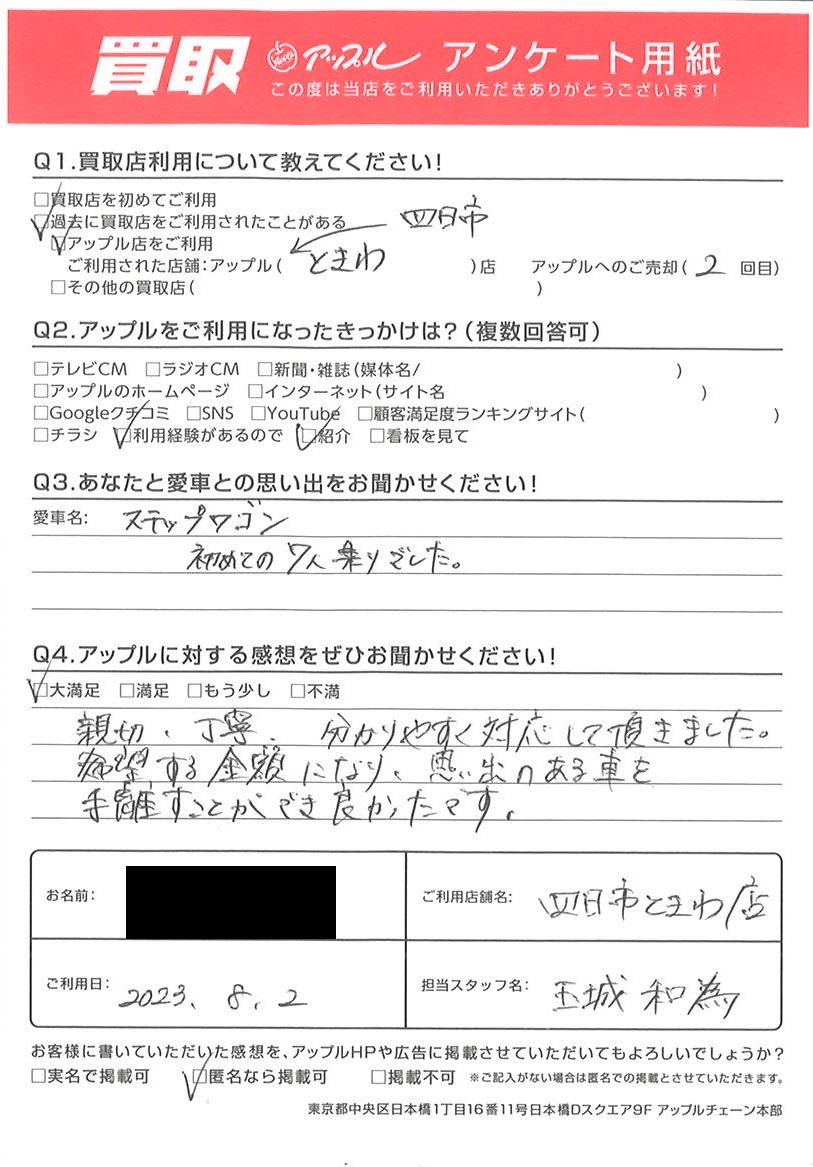 買取 アップル アンケート用紙
この度は当店をご利用いただきありがとうございます!
Q1.買取店利用について教えてください!
□買取店を初めてご利用
☑過去に買取店をご利用されたことがある 四日市
☑アップル店をご利用
ご利用された店舗:アップル( ときわ )店 アップルへのご売却( 2 回目)
□その他の買取店( )
Q2.アップルをご利用になったきっかけは?(複数回答可)
□テレビCM □ラジオCM □新聞・雑誌(媒体名/ )
□アップルのホームページ □インターネット(サイト名 )
□Googleクチコミ □SNS □YouTube □顧客満足度ランキングサイト( )
□チラシ ☑利用経験があるので ☑紹介 □看板を見て
Q3.あなたと愛車との思い出をお聞かせください!
愛車名: ステップワゴン
初めての7人乗りでした。
Q4.アップルに対する感想をぜひお聞かせください!
☑大満足 □満足 □もう少し □不満
親切、丁寧、分かりやすく対応して頂きました。
希望する金額になり、思い出のある車を
手離すことができ良かったです。
お名前:
ご利用店舗名: 四日市ときわ店
ご利用日: 2023. 8. 2
担当スタッフ名: 玉城 和為
お客様に書いていただいた感想を、アップルHPや広告に掲載させていただいてもよろしいでしょうか?
□実名で掲載可 ☑匿名なら掲載可 □掲載不可 ※ご記入がない場合は匿名での掲載とさせていただきます。
東京都中央区日本橋1丁目16番11号日本橋Dスクエア9F アップルチェーン本部